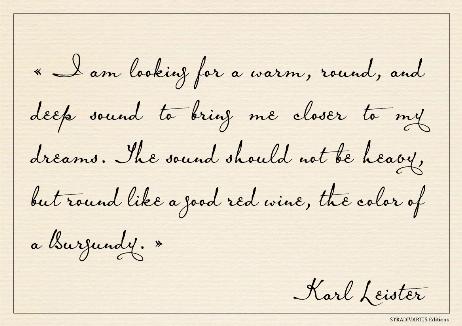 « I am looking for a warm, round, and
deep sound to bring me closer to my
dreams. The sound should not be heavy,
but round like a good red wine, the color of
a Burgundy. »
Karl Leister
STRADIVARIUS Editions